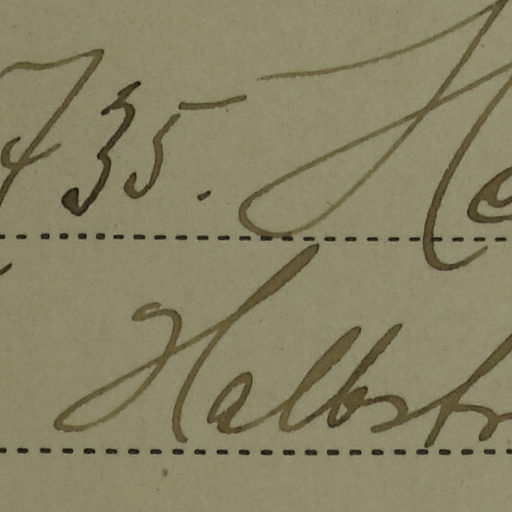 735. He
Halbstr